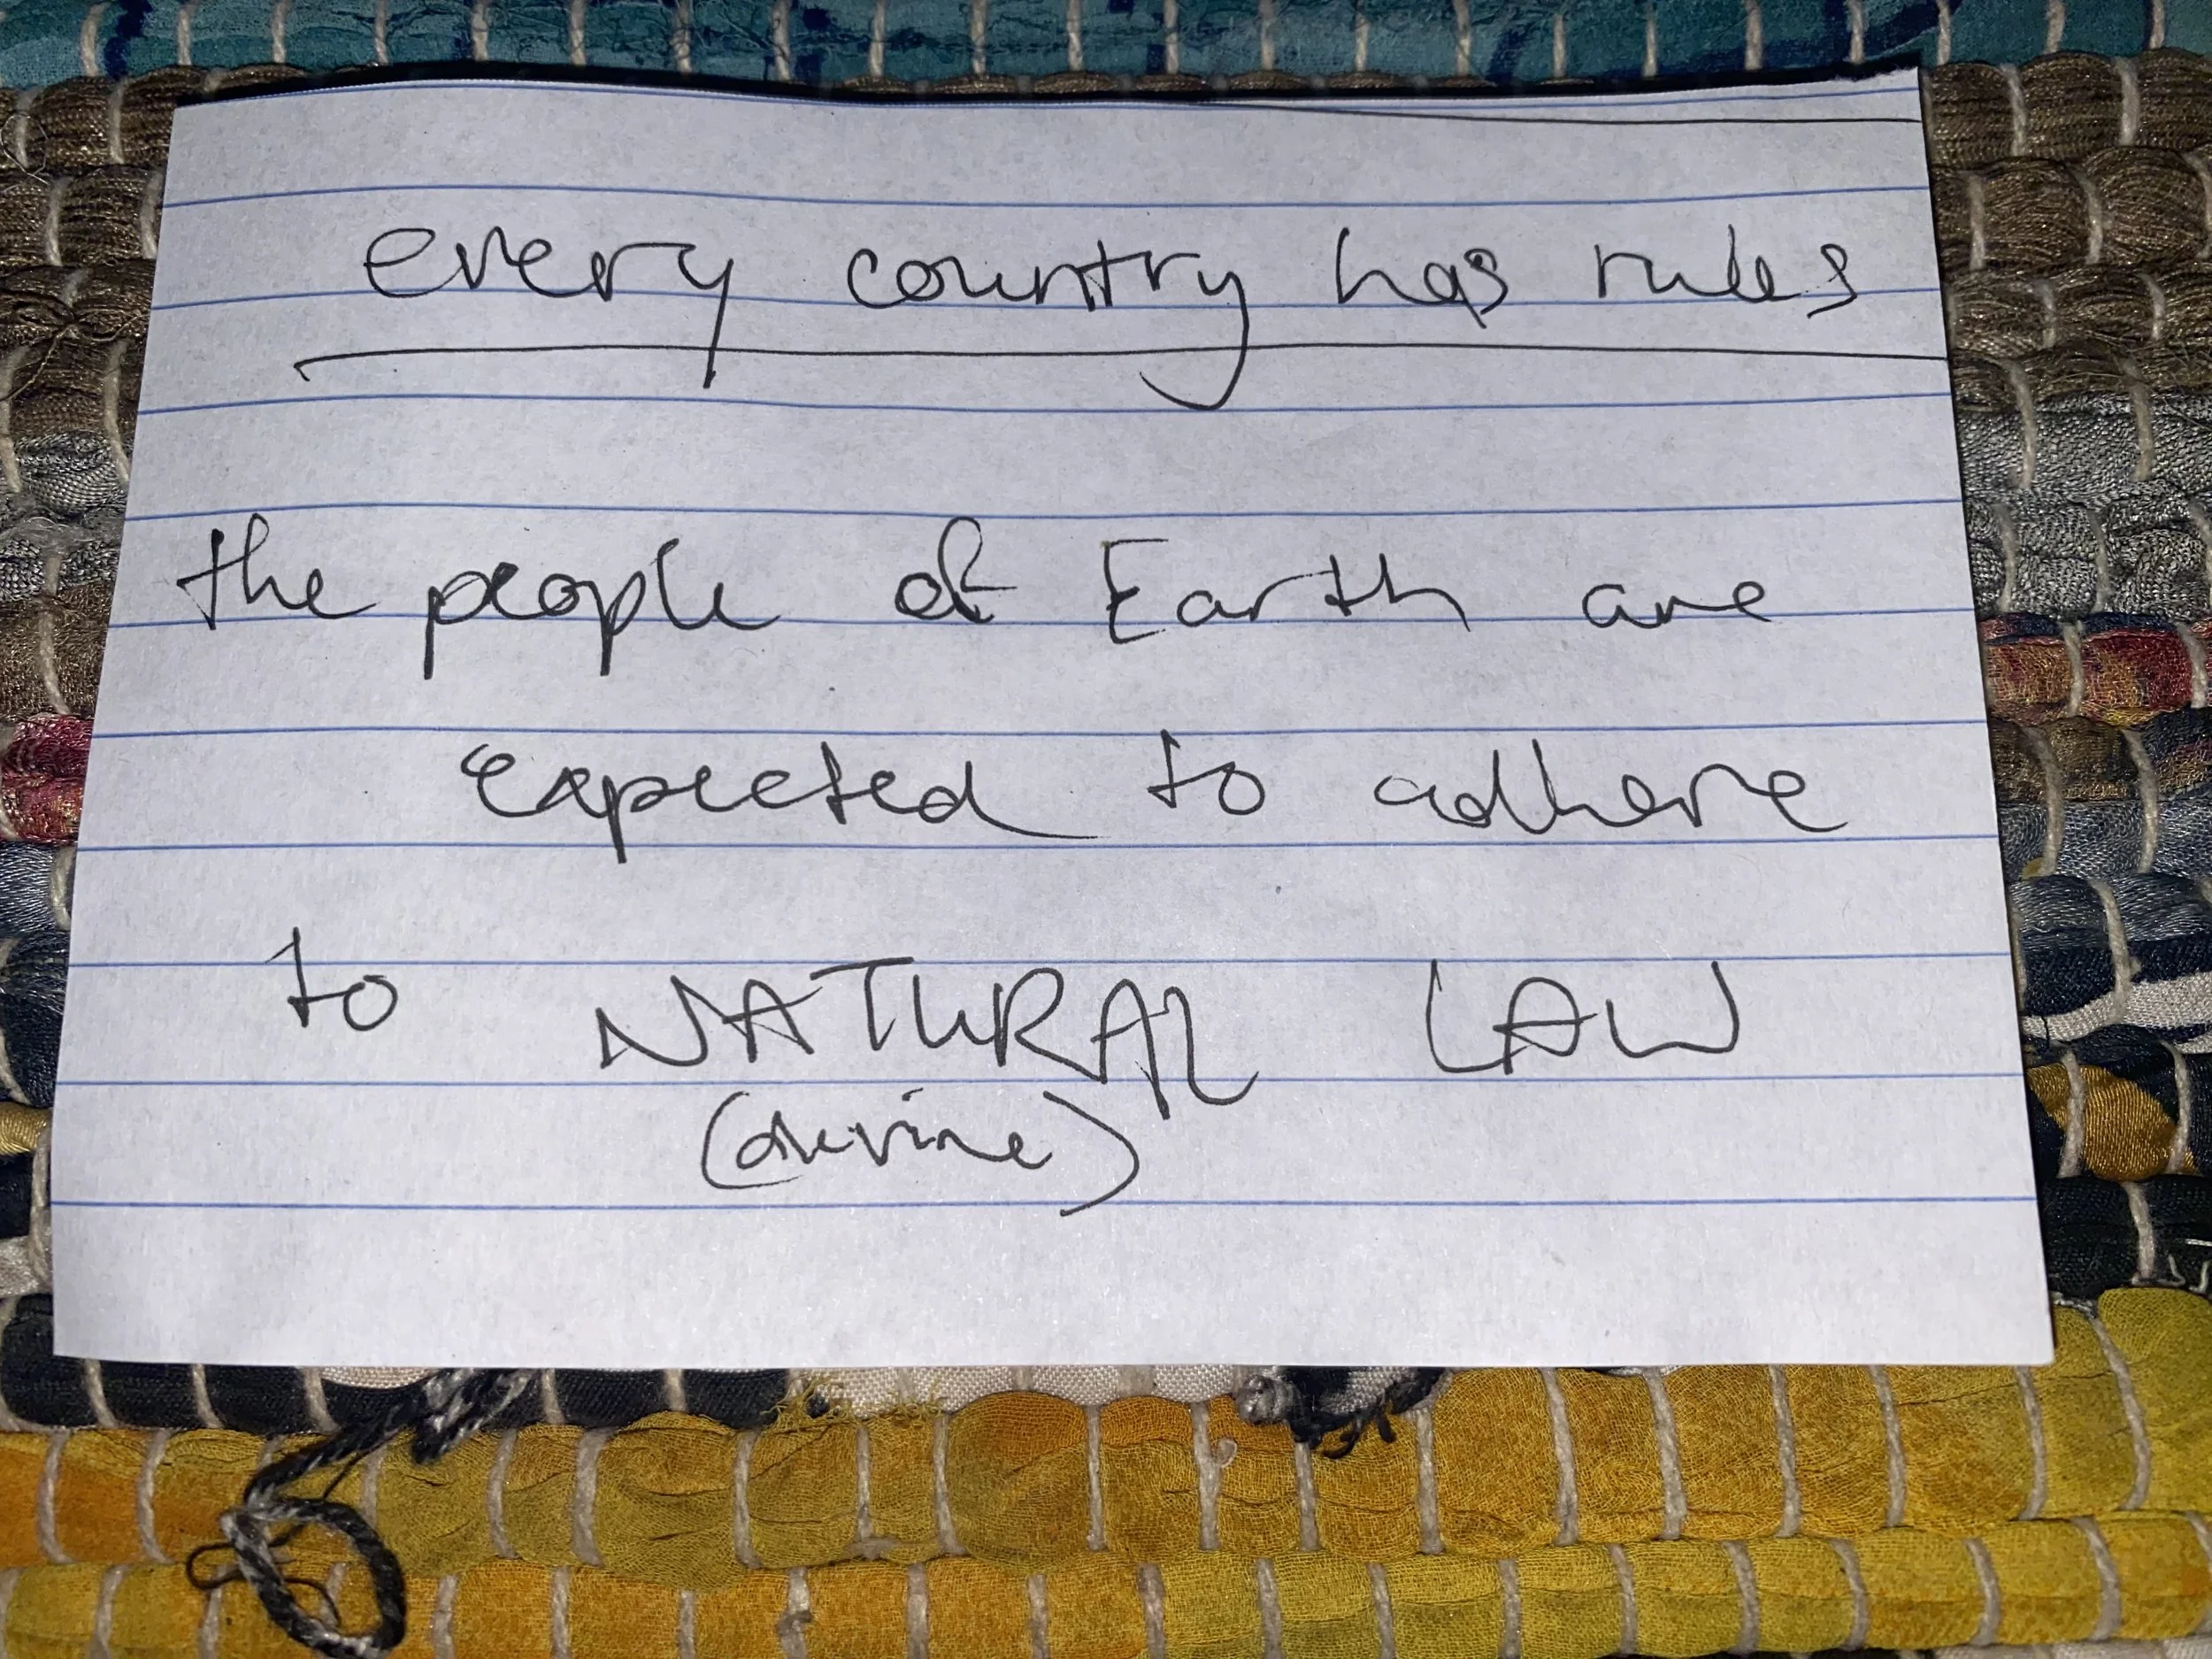 every country has rules
the people of Earth are
expected to adhere
to NATURAL LAW
(divine)